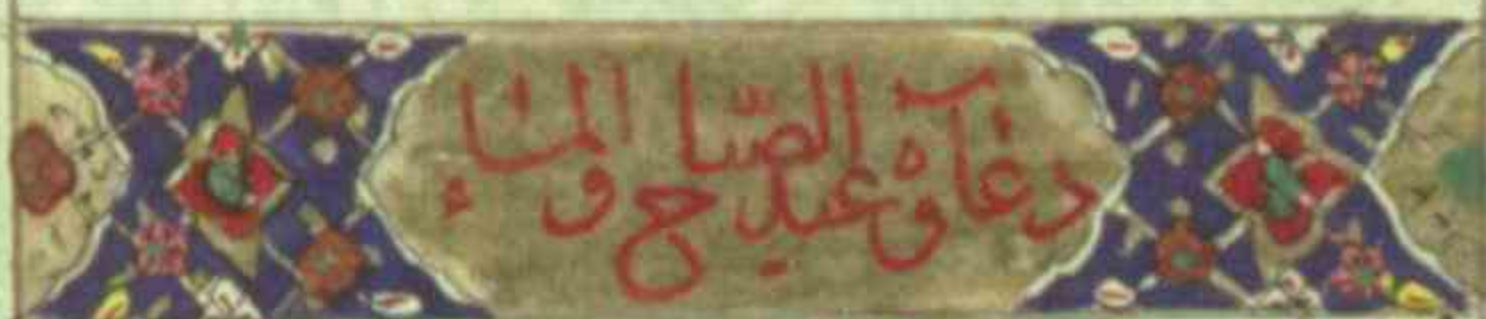 دعاؤه عند الصباح والمساء